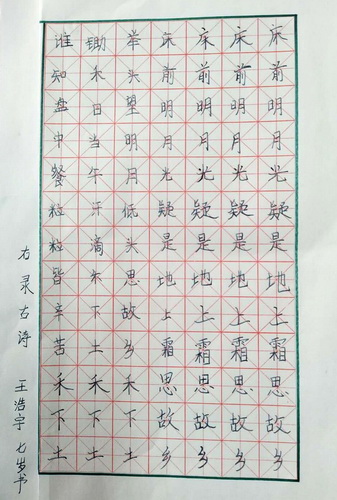 床前明月光疑是地上霜思故乡
床前明月光疑是地上霜思故乡
床前明月光疑是地上霜思故乡
床前明月光疑是地上霜思故乡
举头望明月低头思故乡禾下土
锄禾日当午汗滴禾下土禾下土
谁知盘中餐粒粒皆辛苦禾下土
右录古诗 王浩宇 七岁书